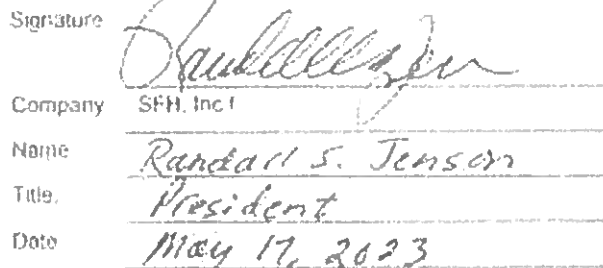 Signature
Company SFH, Inc.
Name Randall S. Jenson
Title. President
Date May 17, 2023